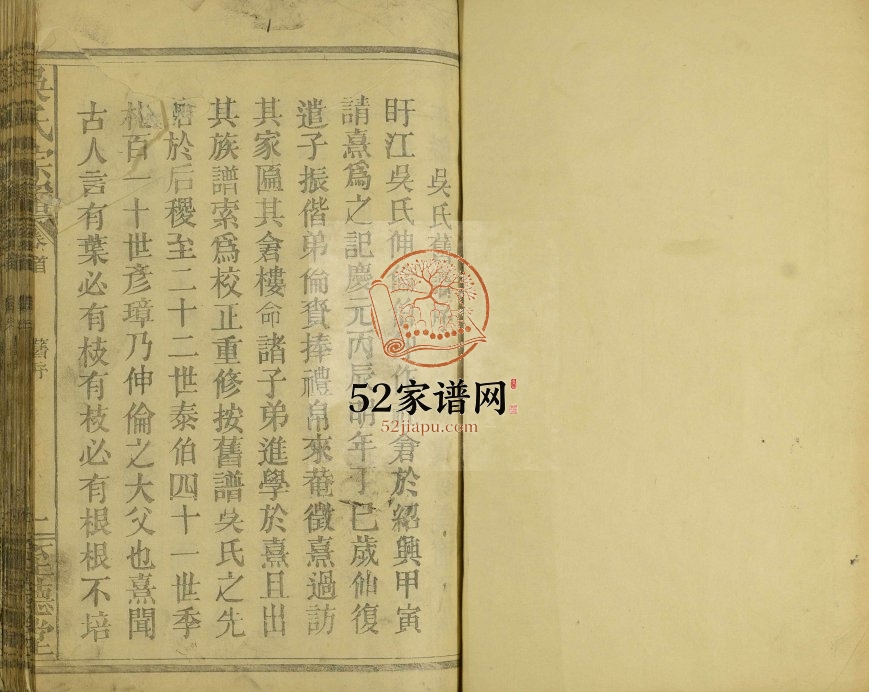 吳氏舊譜序
盱江吳氏伸倫作倉於紹興甲寅
請熹爲之記慶元丙辰明年丁巳歲伸復
遣子振偕弟倫賫捧禮帛來菴徵熹過訪
其家匾其倉樓命諸子弟進學於熹且出
其族譜索爲校正重修按舊譜吳氏之先
於后稷至二十二世泰伯四十一世季
札百一十世彥璋乃伸倫之大父也熹聞
古人言有葉必有枝有枝必有根根不培
吳氏宗譜
卷首
舊序
52家谱网
52jiapu.com